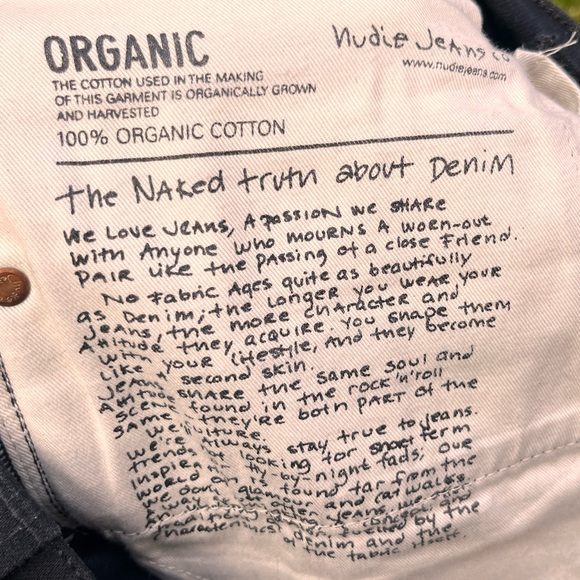 ORGANIC
THE COTTON USED IN THE MAKING
OF THIS GARMENT IS ORGANICALLY GROWN
AND HARVESTED
100% ORGANIC COTTON
Nudie Jeans co
www.nudiejeans.com
the Naked truth about Denim
We Love Jeans, A passion we share
with Anyone who mourns a worn-out
pair like the passing of a close friend.
No fabric Ages quite as beautifully
as Denim, the longer you wear your
Jeans, the more character and
Attitude they acquire. You shape them
with your lifestile, And they become
like a second skin.
Jeans share the same soul and
attitude found in the rock'n'roll
scene, they're both part of the
same culture.
We'll always stay true to jeans.
We're not looking for short term
trends or fly-by-night fads; our
inspiration is found far from the
world of glamour and catwalks.
We don't
jeans, we
concept and
traditions of denim fuelled by the
characteristics of denim and the
of the fabric itself.